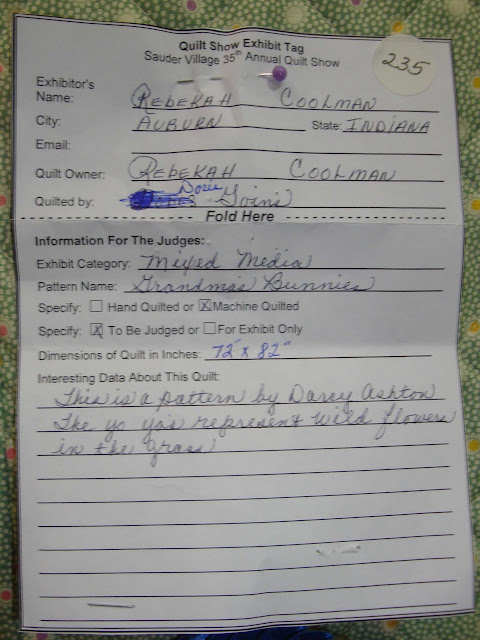 Quilt Show Exhibit Tag
Sauder Village 35th Annual Quilt Show
235
Exhibitor's
Name: REBEKAH COOLMAN
City: AUBURN State: INDIANA
Email:
Quilt Owner: REBEKAH COOLMAN
Quilted by: Doris Goins
Fold Here
Information For The Judges:
Exhibit Category: Mixed Media
Pattern Name: Grandma's Bunnies
Specify: Hand Quilted or X Machine Quilted
Specify: X To Be Judged or For Exhibit Only
Dimensions of Quilt in Inches: 72" x 82"
Interesting Data About This Quilt:
This is a pattern by Darcy Ashton
The yo yo's represent wild flowers
in the grass